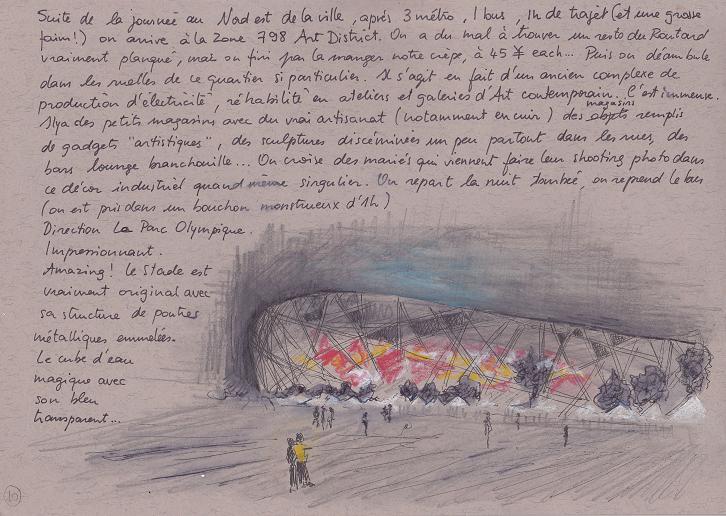 Suite de la journée au Nord est de la ville, après 3 métro, 1 bus, 1h de trajet (et une grosse
faim!) on arive à la Zone 798 Art District. On a du mal à trouver un resto du Routard
vraiment planqué, mais on fini par la manger notre crèpe, à 45 ¥ each... Puis on déambule
dans les ruelles de ce quartier si particulier. Il s'agit en fait d'un ancien complexe de
production d'électricité, réhabilité en ateliers et galeries d'Art contemporain. C'est immense.
Il y a des petits magasins avec du vrai artisanat (notamment en cuir) des magasins remplis
de gadgets "artistiques", des sculptures disséminées un peu partout dans les rues, des
bars lounge branchouille... On croise des mariés qui viennent faire leur shooting photo dans
ce décor industriel quand même singulier. On repart la nuit tombée, on reprend le bus
(on est pris dans un bouchon monstrueux d'1h)
Direction Le Parc Olympique.
Impressionnant.
Amazing! Le Stade est
vraiment original avec
sa structure de poutres
métalliques emmelées.
Le cube d'eau
magique avec
son bleu
transparent...
10